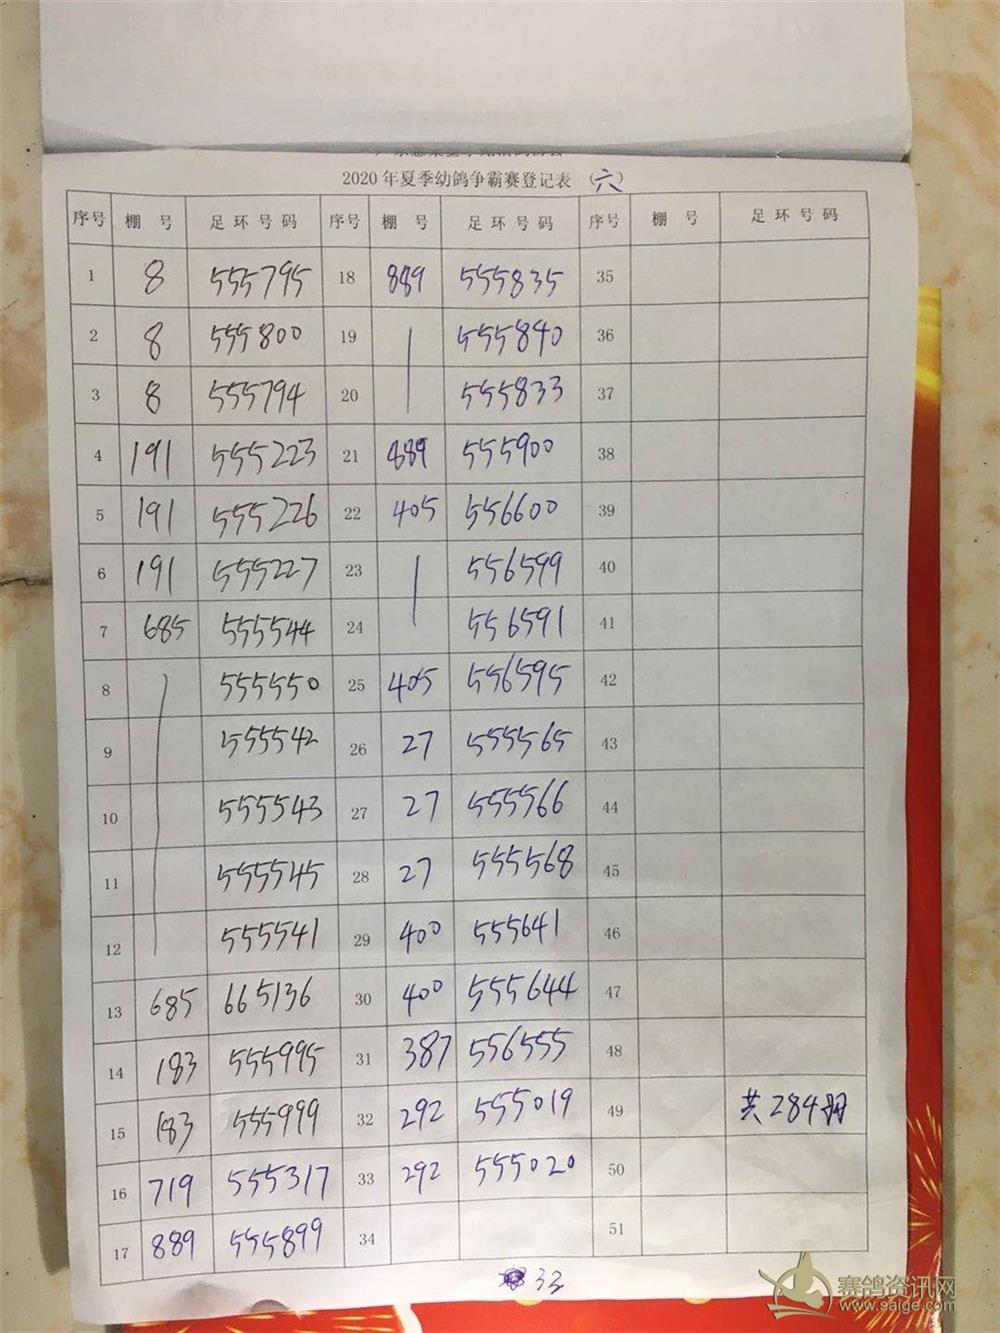 2020年夏季幼鸽争霸赛登记表 (六)
序号 棚号 足环号码 序号 棚号 足环号码 序号 棚号 足环号码
1 8 555795 18 889 555835 35
2 8 555800 19 | 555840 36
3 8 555794 20 555833 37
4 191 555223 21 889 555900 38
5 191 555226 22 405 556600 39
6 191 555227 23 | 556599 40
7 685 555544 24 556591 41
8 | 555550 25 405 556595 42
9 555542 26 27 555565 43
10 555543 27 27 555566 44
11 555545 28 27 555568 45
12 555541 29 400 555641 46
13 685 665136 30 400 555644 47
14 183 555995 31 387 556555 48
15 183 555999 32 292 555019 49 共284羽
16 719 555317 33 292 555020 50
17 889 555899 34 51
33
赛鸽资讯网
www.saige.com